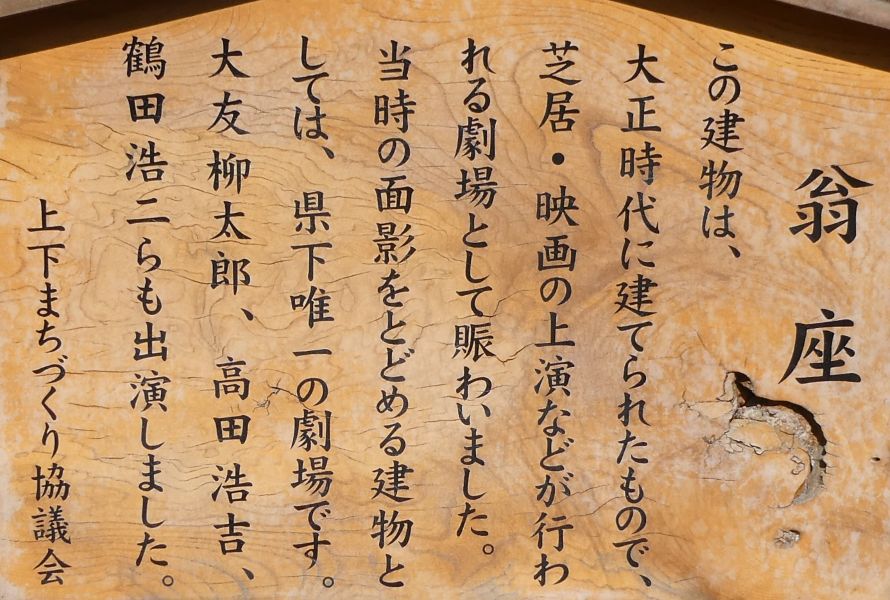 翁座
この建物は、
大正時代に建てられたもので、
芝居・映画の上演などが行わ
れる劇場として賑わいました。
当時の面影をとどめる建物と
しては、県下唯一の劇場です。
大友柳太郎、高田浩吉、
鶴田浩二らも出演しました。
上下まちづくり協議会